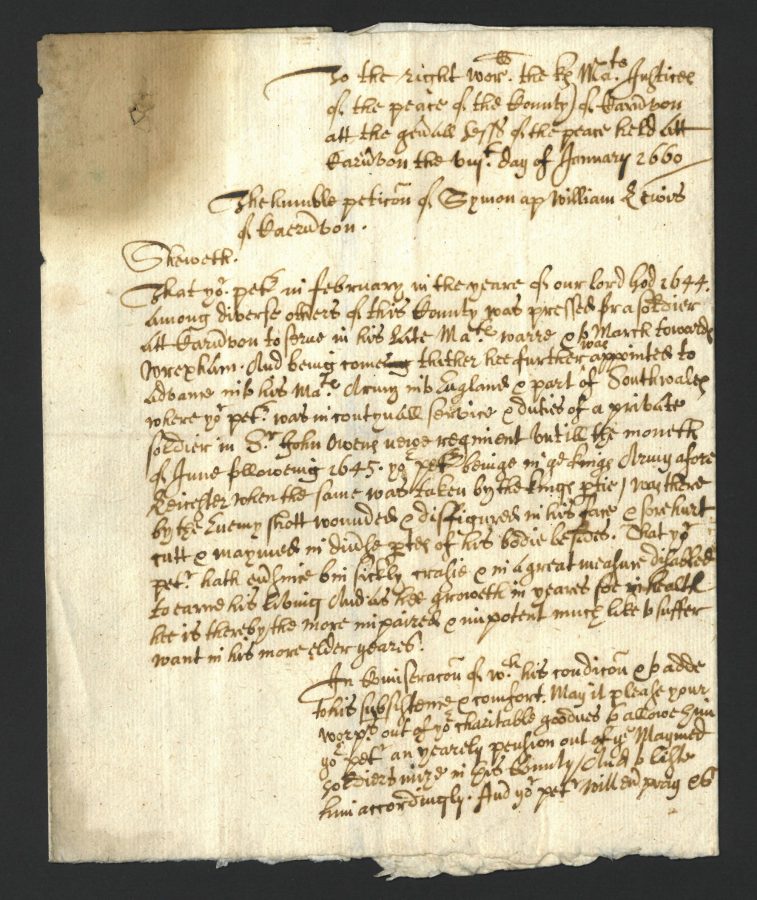 To the right wor: the ks Ma:ts Justices
of the peace of the County of Carnrvon
att the gen'all Sess of the peace held att
Carnrvon the viijth day of January 1660
The humble peticon of Symon ap William Lewis
of Caernrvon.
Sheweth.
That yor: petr in february in the yeare of our lord God 1644.
Among diverse others of this County was pressed for a soldier
att Carnrvon to serve in his late Ma:ts warre & to March towards
Wrexham. And being come thether hee further was appointed to
advance into his Ma:ts Army into England & part of Southwales
where yor petr: was in contynuall service & duties of a private
soldier in Sr John Owens newe regiment untill the moneth
of June followeing 1645. yor petr beinge in ye kings Army afore
Leicester when the same was taken by the kings ptie / was there
by the Enemy shott wounded & disfigured in his face & sore hurt
cutt & maymed in divrse ptes of his bodie besides. That yor
petr: hath ever since bin sickly crasie & in a great measure disabled
to earne his living And as hee groweth in yeares soe in health
hee is thereby the more impaired & impotent much like to suffer
want in his more elder yeares.
In Comiseracon of wch his condicon & to adde
to his subsistence & comfort. May it please your
worps: out of yor charitable goodnes to allowe him
yor petr an yearely pension out of ye Maymed
soldiers mize in this County / And to liste
him accordingly. And yor petr will ever pray &c